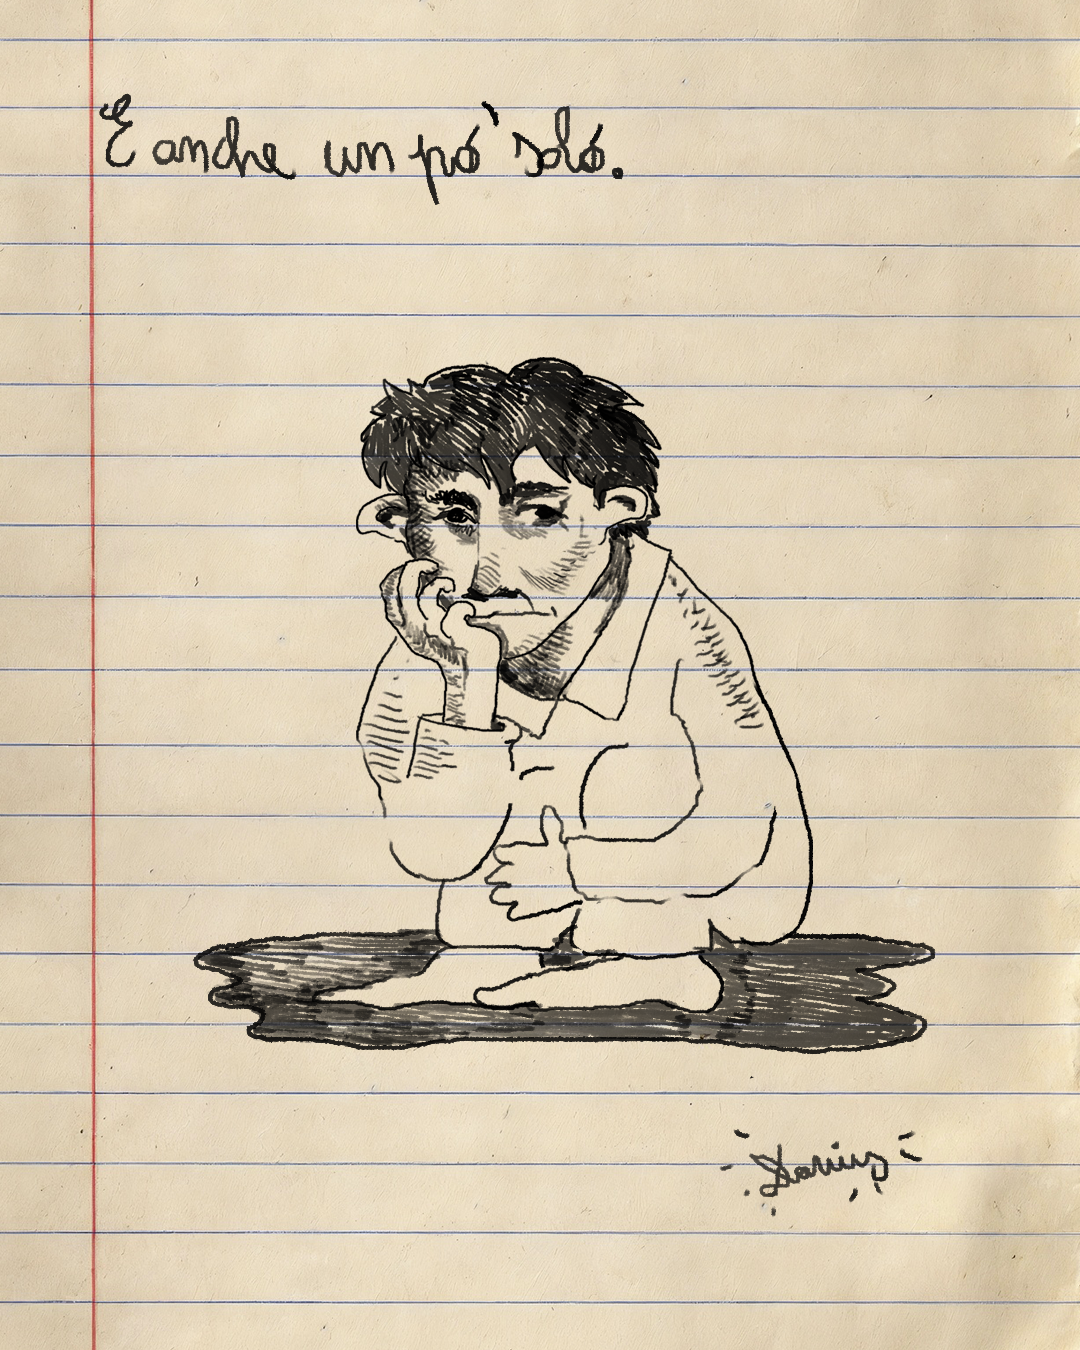 E anche un pó' solo.
Darius